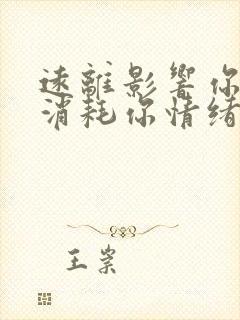 遠離影響你
消耗你情緒
王崇